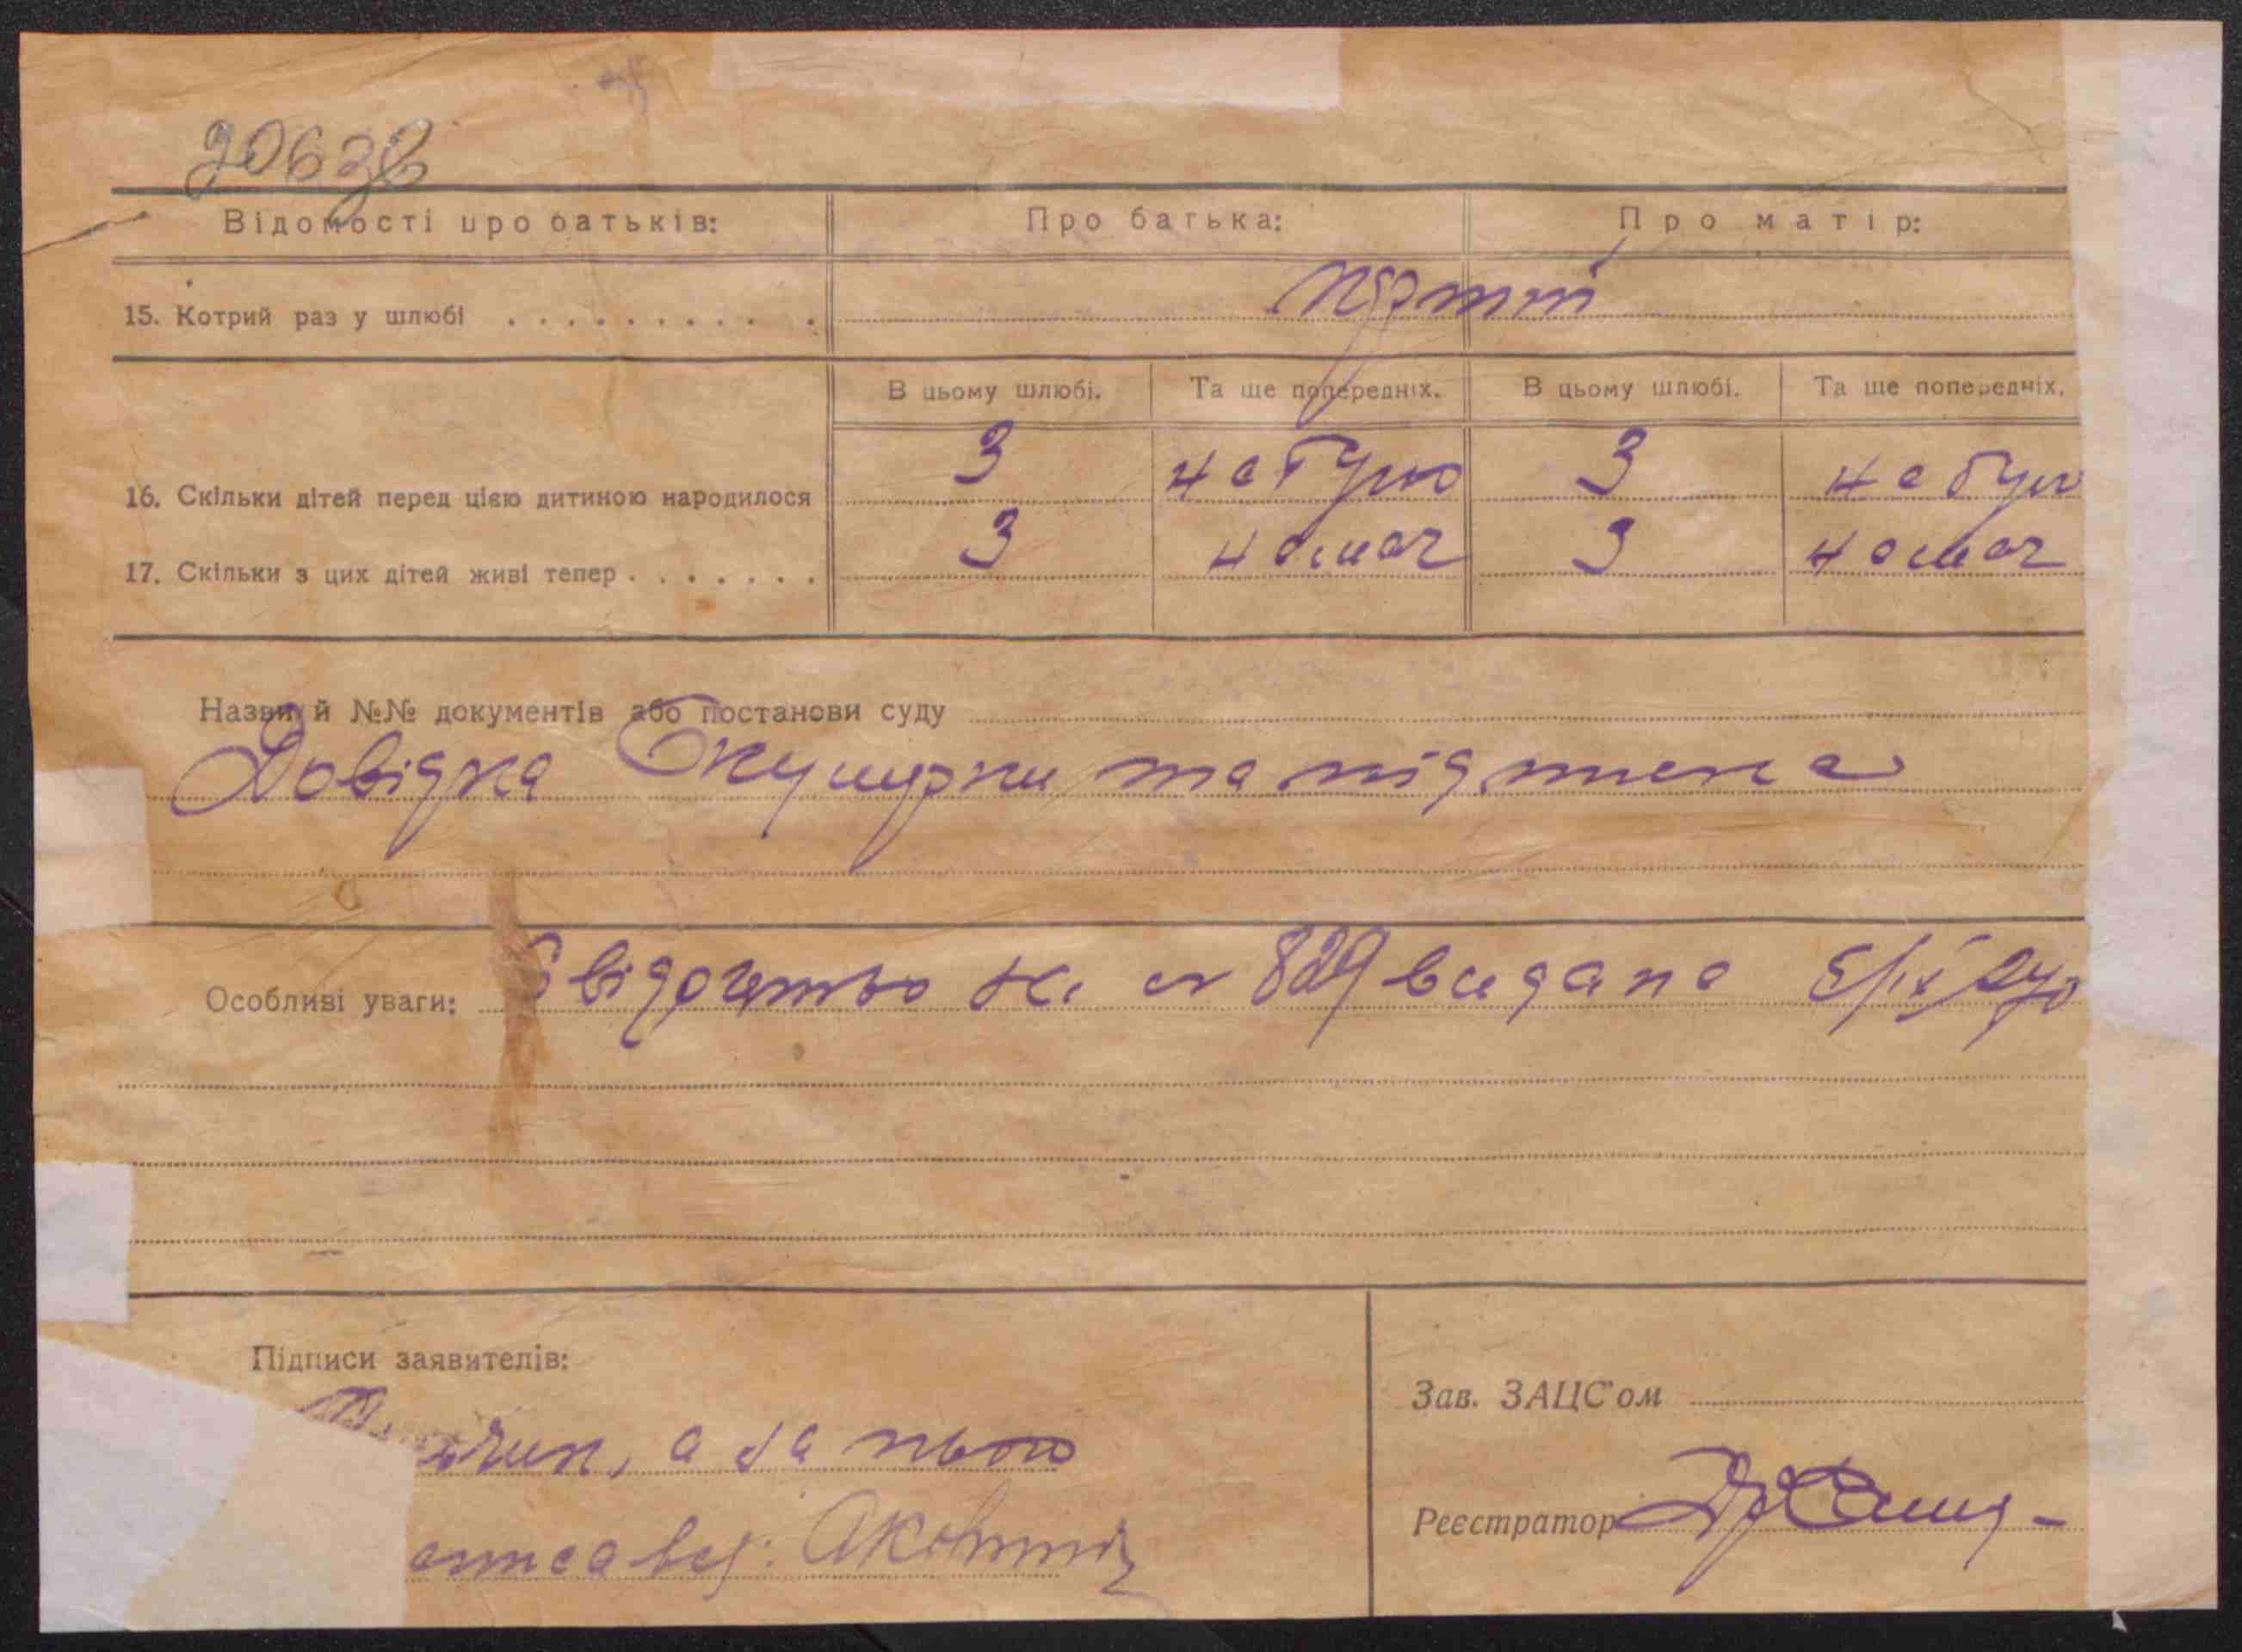 Відомості про батьків: Про батька: Про матір:
15. Котрий раз у шлюбі . . . . . . . . . . .
В цьому шлюбі. Та ще попередніх. В цьому шлюбі. Та ще попередніх.
16. Скільки дітей перед цією дитиною народилося 3 не було 3 не було
17. Скільки з цих дітей живі тепер . . . . . . . 3 немає 3 немає
Назви й №№ документів або постанови суду
Довідка Окушерки та
Особливі уваги: Свідоцтво № 829 видано
Підписи заявителів:
а за нього
Зав. ЗАЦС'ом
Реєстратор